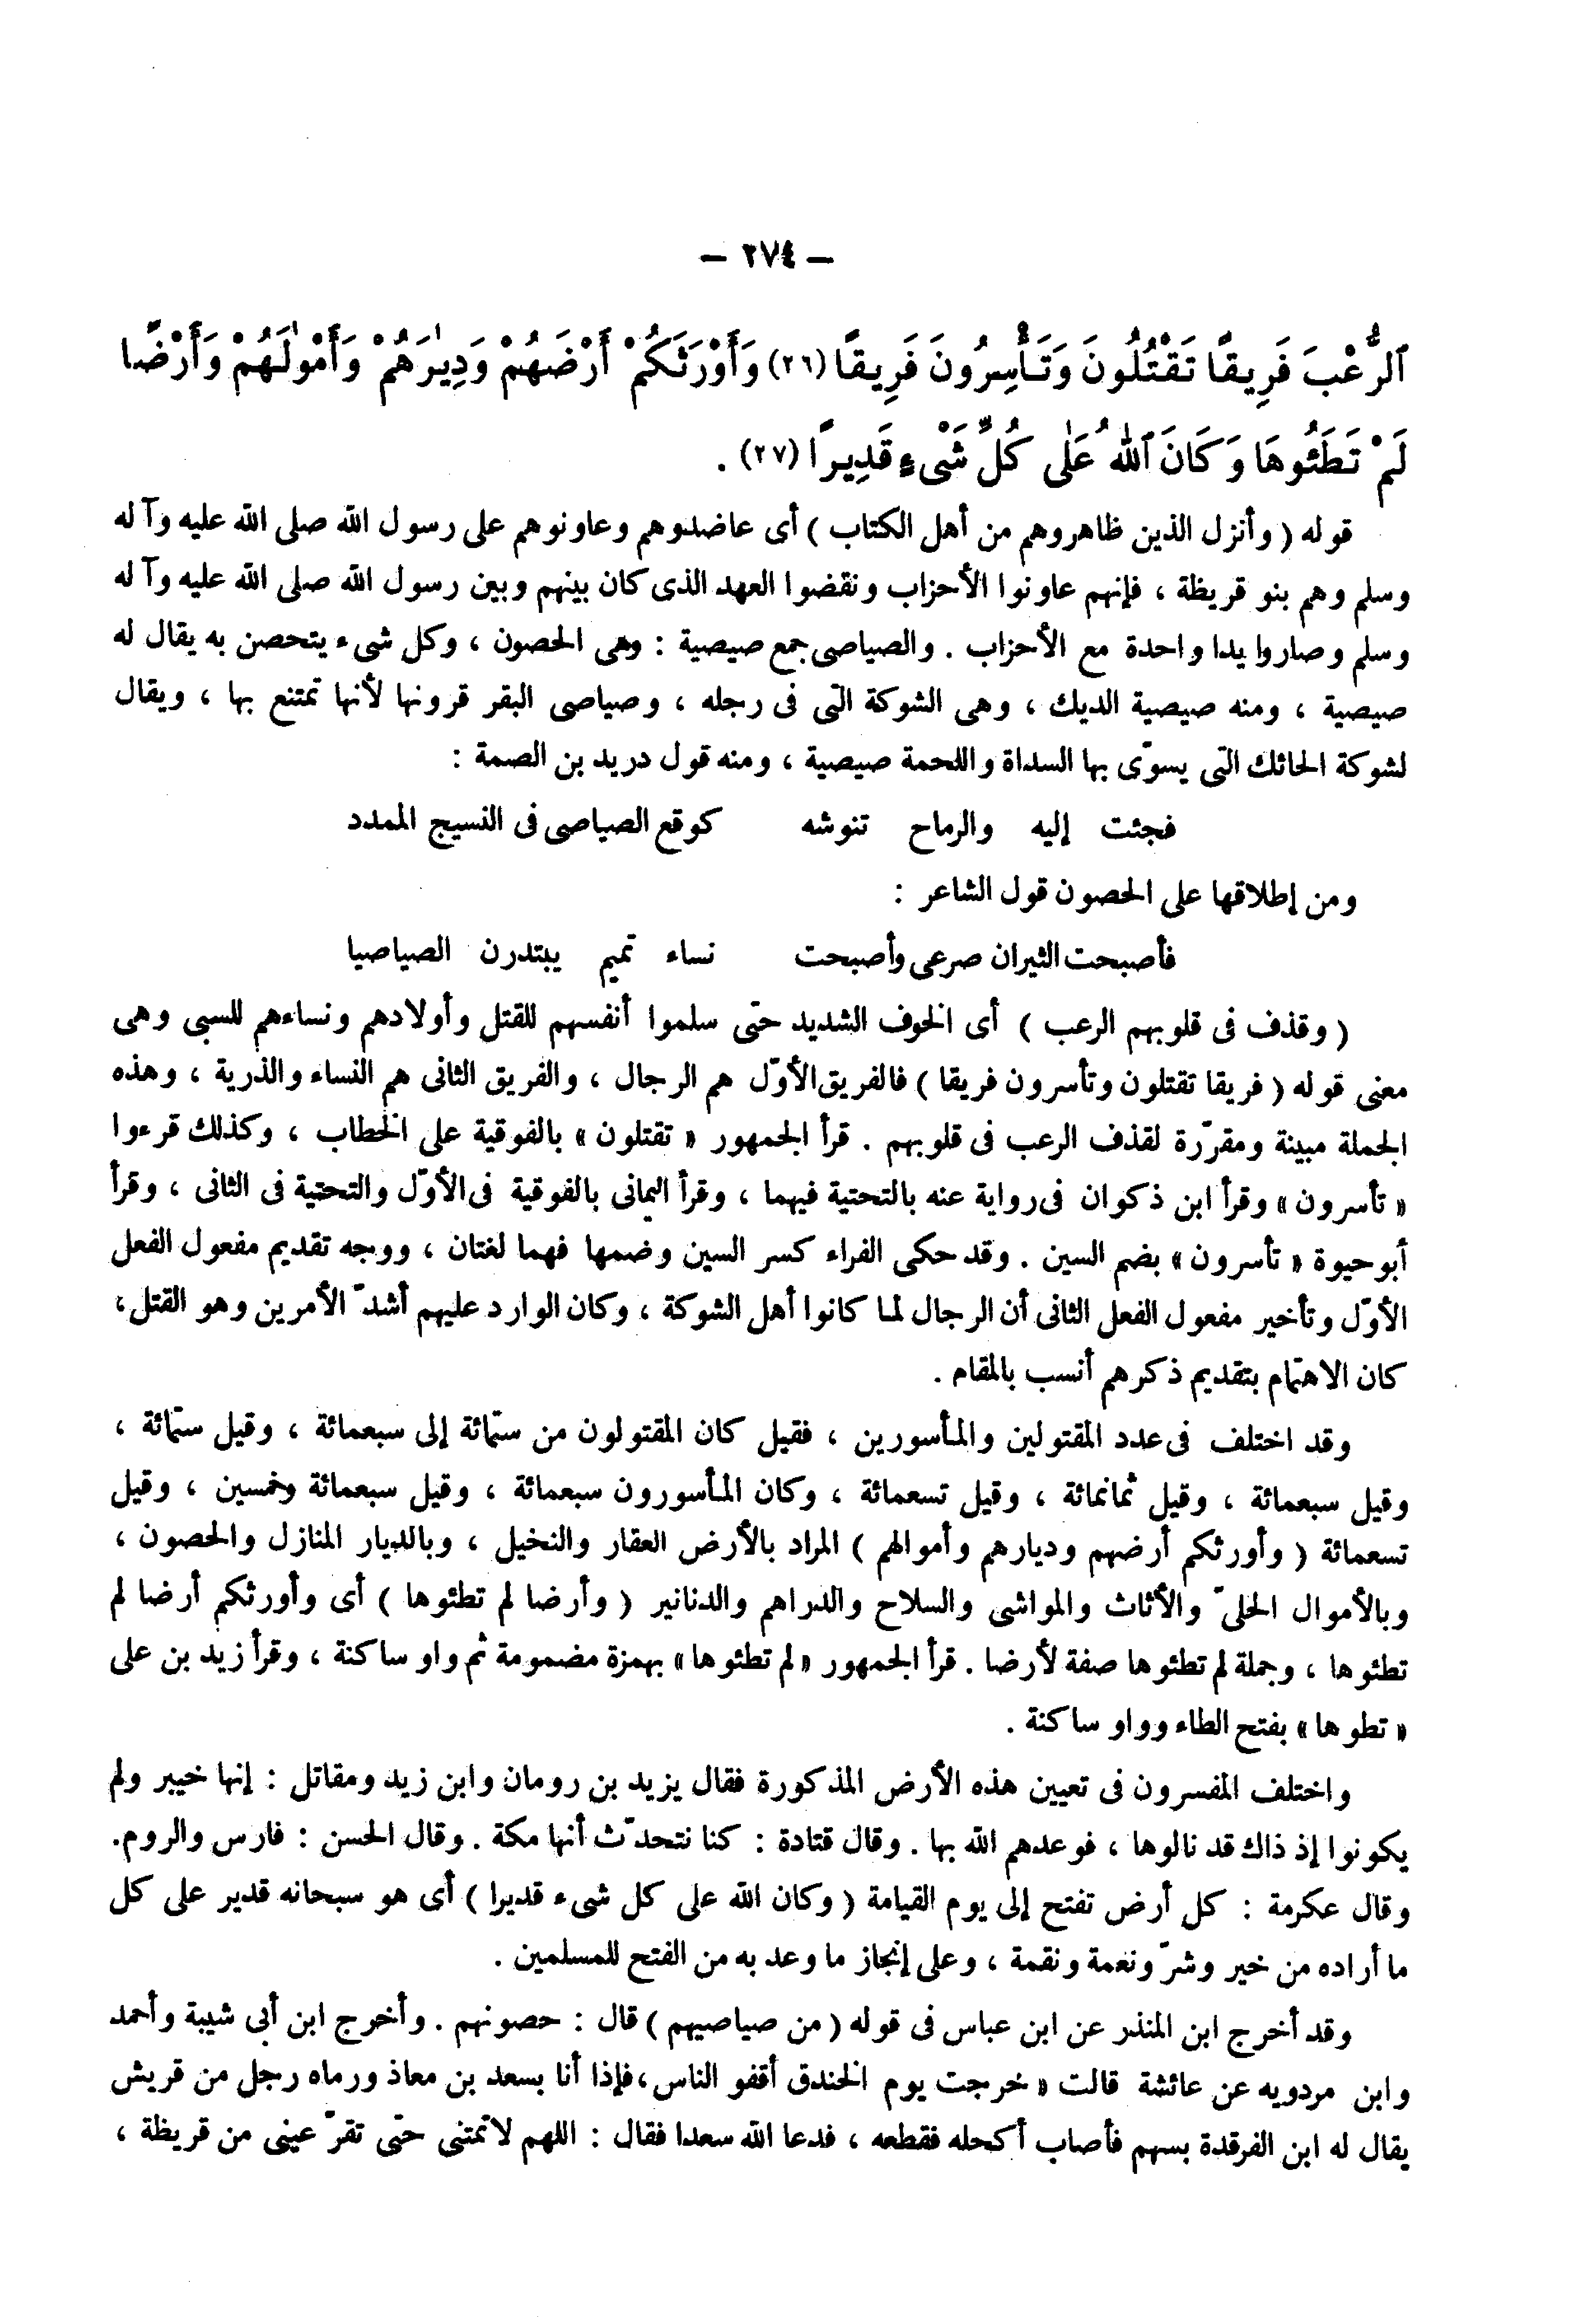 — ٢٧٤ —
ٱلرُّعْبَ فَرِيقًا تَقْتُلُونَ وَتَأْسِرُونَ فَرِيقًا (٢٦) وَأَوْرَثَكُمْ أَرْضَهُمْ وَدِيَٰرَهُمْ وَأَمْوَٰلَهُمْ وَأَرْضًا
لَمْ تَطَئُوهَا وَكَانَ ٱللَّهُ عَلَىٰ كُلِّ شَىْءٍ قَدِيرًا (٢٧) .
قوله ( وأنزل الذين ظاهروهم من أهل الكتاب ) أى عاضدوهم وعاونوهم على رسول الله صلى الله عليه وآله
وسلم وهم بنو قريظة ، فإنهم عاونوا الأحزاب ونقضوا العهد الذى كان بينهم وبين رسول الله صلى الله عليه وآله
وسلم وصاروا يدا واحدة مع الأحزاب . والصياصى جمع صيصية : وهى الحصون ، وكل شىء يتحصن به يقال له
صيصية ، ومنه صيصية الديك ، وهى الشوكة التى فى رجله ، وصياصى البقر قرونها لأنها تمتنع بها ، ويقال
لشوكة الحائك التى يسوّى بها السداة واللحمة صيصية ، ومنه قول دريد بن الصمة :
فجئت إليه والرماح تنوشه كوقع الصياصى فى النسيج الممدد
ومن إطلاقها على الحصون قول الشاعر :
فأصبحت الثيران صرعى وأصبحت نساء تميم يبتدرن الصياصيا
( وقذف فى قلوبهم الرعب ) أى الخوف الشديد حتى سلموا أنفسهم للقتل وأولادهم ونساءهم للسبى وهى
معنى قوله ( فريقا تقتلون وتأسرون فريقا ) فالفريق الأوّل هم الرجال ، والفريق الثانى هم النساء والذرية ، وهذه
الجملة مبينة ومقرّرة لقذف الرعب فى قلوبهم . قرأ الجمهور « تقتلون » بالفوقية على الخطاب ، وكذلك قرءوا
« تأسرون » وقرأ ابن ذكوان فى رواية عنه بالتحتية فيهما ، وقرأ اليمانى بالفوقية فى الأوّل والتحتية فى الثانى ، وقرأ
أبو حيوة « تأسرون » بضم السين . وقد حكى الفراء كسر السين وضمها فهما لغتان ، ووجه تقديم مفعول الفعل
الأوّل وتأخير مفعول الفعل الثانى أن الرجال لما كانوا أهل الشوكة ، وكان الوارد عليهم أشدّ الأمرين وهو القتل ،
كان الاهتمام بتقديم ذكرهم أنسب بالمقام .
وقد اختلف فى عدد المقتولين والمأسورين ، فقيل كان المقتولون من ستمائة إلى سبعمائة ، وقيل ستمائة ،
وقيل سبعمائة ، وقيل ثمانمائة ، وقيل تسعمائة ، وكان المأسورون سبعمائة ، وقيل سبعمائة وخمسين ، وقيل
تسعمائة ( وأورثكم أرضهم وديارهم وأموالهم ) المراد بالأرض العقار والنخيل ، وبالديار المنازل والحصون ،
وبالأموال الحلىّ والأثاث والمواشى والسلاح والدراهم والدنانير ( وأرضا لم تطئوها ) أى وأورثكم أرضا لم
تطئوها ، وجملة لم تطئوها صفة لأرضا . قرأ الجمهور « لم تطئوها » بهمزة مضمومة ثم واو ساكنة ، وقرأ زيد بن على
« تطوها » بفتح الطاء وواو ساكنة .
واختلف المفسرون فى تعيين هذه الأرض المذكورة فقال يزيد بن رومان وابن زيد ومقاتل : إنها خيبر ولم
يكونوا إذ ذاك قد نالوها ، فوعدهم الله بها . وقال قتادة : كنا نتحدّث أنها مكة . وقال الحسن : فارس والروم .
وقال عكرمة : كل أرض تفتح إلى يوم القيامة ( وكان الله على كل شىء قديرا ) أى هو سبحانه قدير على كل
ما أراده من خير وشرّ ونعمة ونقمة ، وعلى إنجاز ما وعد به من الفتح للمسلمين .
وقد أخرج ابن المنذر عن ابن عباس فى قوله ( من صياصيهم ) قال : حصونهم . وأخرج ابن أبى شيبة وأحمد
وابن مردويه عن عائشة قالت « خرجت يوم الخندق أقفو الناس ، فإذا أنا بسعد بن معاذ ورماه رجل من قريش
يقال له ابن الفرقدة بسهم فأصاب أكحله فقطعه ، فدعا الله سعدا فقال : اللهم لا تمتنى حتى تقرّ عينى من قريظة ،